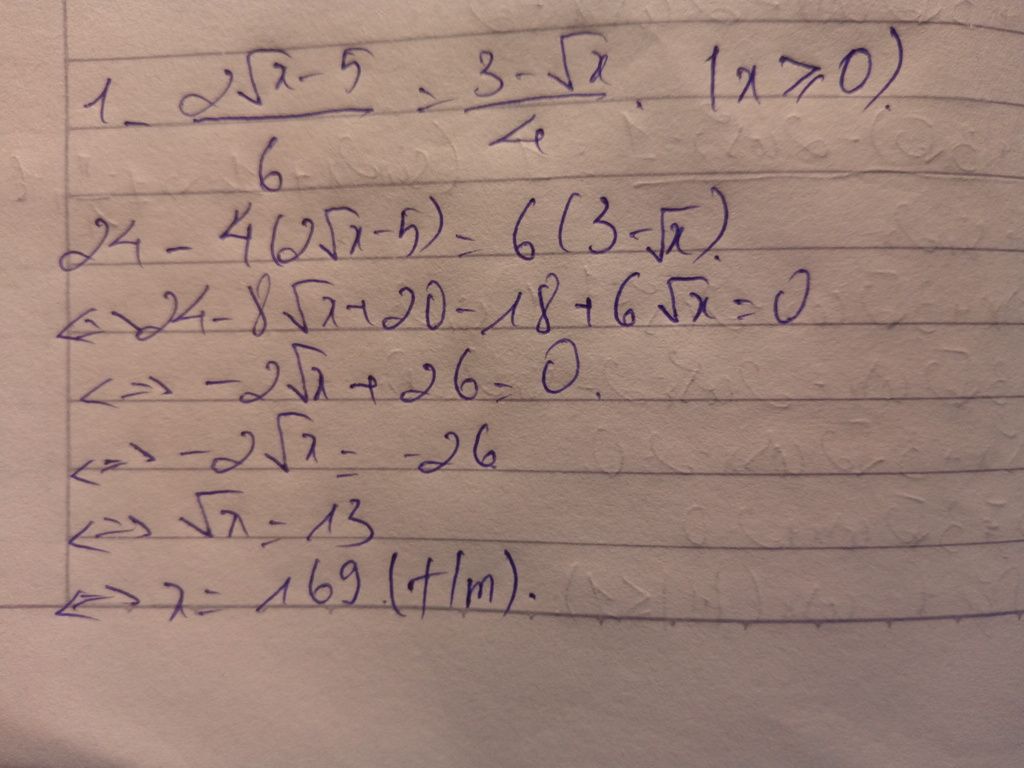 1 - \frac{2\sqrt{x} - 5}{6} = \frac{3 - \sqrt{x}}{4}. (x ≥ 0).
24 - 4(2√x - 5) = 6(3 - √x).
<=> 24 - 8√x + 20 - 18 + 6√x = 0
<=> -2√x + 26 = 0.
<=> -2√x = -26
<=> √x = 13
<=> x = 169 (t/m).